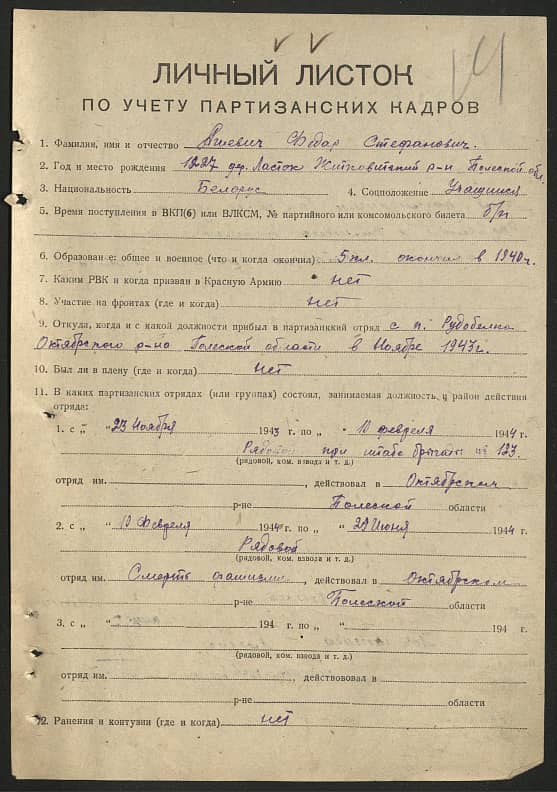 ЛИЧНЫЙ ЛИСТОК
ПО УЧЕТУ ПАРТИЗАНСКИХ КАДРОВ
1. Фамилия, имя и отчество Фёдар Стефанович.
2. Год и место рождения 1927 дер. Ласток Житковитский р-н Полеской обл.
3. Национальность Белорус 4. Соцположение Учащийся
5. Время поступления в ВКП(б) или ВЛКСМ, № партийного или комсомольского билета б/п
6. Образован е: общее и военное (что и когда окончил) 5 кл. окончил в 1940г.
7. Каким РВК и когда призван в Красную Армию нет
8. Участие на фронтах (где и когда) нет
9. Откуда, когда и с какой должности прибыл в партизанкий отряд с п. Рудобелка
Октябрского р-на Полеской области в Ноябре 1943г.
10. Был ли в плену (где и когда) нет
11. В каких партизанских отрядах (или группах) состоял, занимаемая должность и район действия
отряда:
1. с „ " 23 Ноября 1943 г. по „ " 10 февраля 1944 г.
Рядовой при штабе бригады № 123
(рядовой, ком. взвода и т. д.)
отряд им. , действовал в Октябрском
р-не Полеской области
2. с „ " 10 Февраля 1944 г. по „ " 29 Июня 1944 г.
Рядовой
(рядовой, ком. взвода и т. д.)
отряд им. Смерть фашизму , действовал в Октябрском
р-не Полеской области
3. с „ " 194 г. по „ " 194 г.
(рядовой, ком. взвода и т. д.)
отряд им. , действововал в
р-не области
12. Ранения и контузии (где и когда) нет